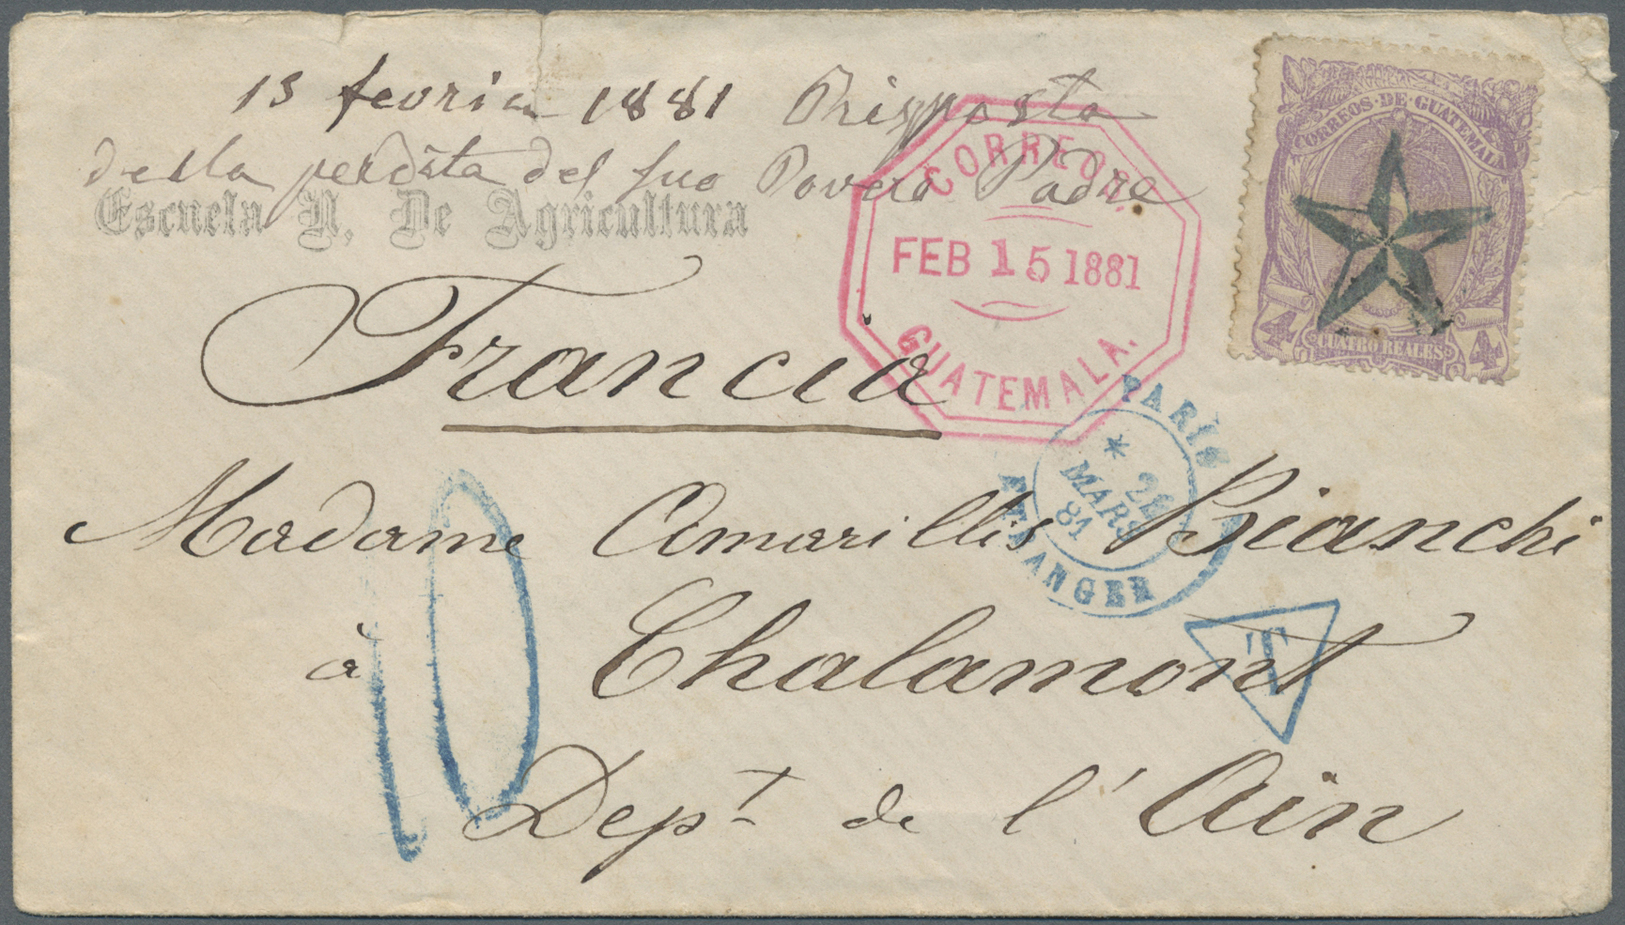 13 fevrier 1881 Risposta
della perdita del suo Povero Padre
Escuela N. De Agricultura
CORREOS
FEB 15 1881
GUATEMALA.
CORREOS·DE·GUATEMALA
4 CUATRO REALES 4
Francia
PARIS
* 21
MARS
81
ETRANGER
Madame Amarillis Bianchi
à Chalamont
T
10
Dept de l'Ain